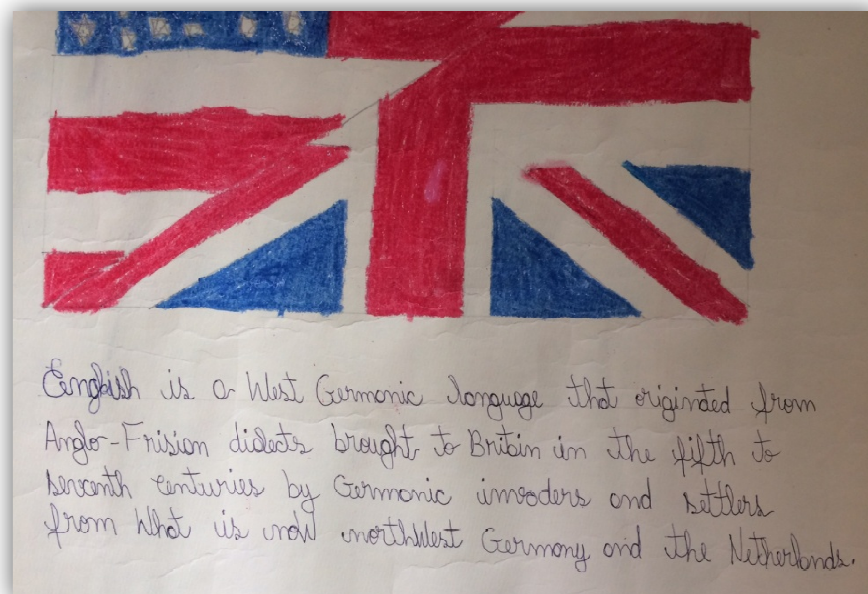 English is a West Germanic language that originded from
Anglo-Frision dialects brought to Britain in the fifth to
seventh centuries by Germanic invaders and settlers
from What is now northWest Germany and the Netherlands.